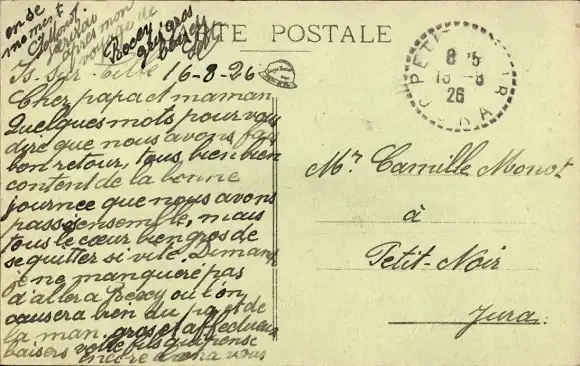 CARTE POSTALE
en se
moment
après mon
voyage de
Recey gros
Is-sur-Tille 16-8-26
Cher papa et maman
Quelques mots pour vous
dire que nous avons fait
bon retour, tous bien bien
content de la bonne
journee que nous avons
passé ensemble, mais
tous le cœur bien gros de
se quitter si vite. Dimanche
je ne manqueré pas
d'aller a Recey ou l'on
causera bien du pa et de
la man. gros et affectueux
baisers votre fils qui pense
encore a vous
PETIT NOIR
JURA
8 25
18 -8
26
Mr Camille Monot
à
Petit-Noir
Jura.